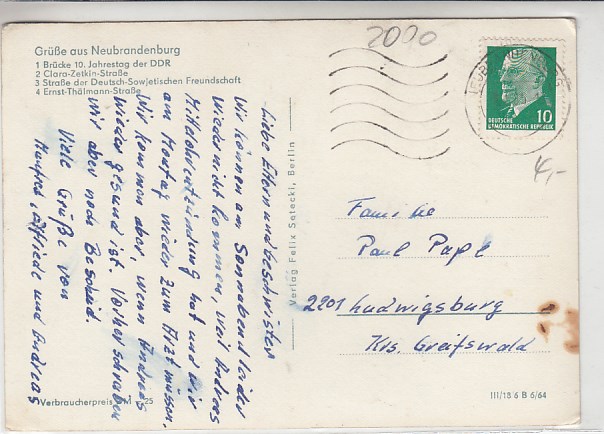 Grüße aus Neubrandenburg
1 Brücke 10. Jahrestag der DDR
2 Clara-Zetkin-Straße
3 Straße der Deutsch-Sowjetischen Freundschaft
4 Ernst-Thälmann-Straße
2000
10
DEUTSCHE
DEMOKRATISCHE REPUBLIK
4,-
Liebe Eltern und Geschwister
Wir können am Sonnabend leider
wieder nicht kommen, weil Andreas
Mittelohrentzündung hat und wir
am Montag wieder zum Arzt müssen.
Wir kommen aber, wenn Andreas
wieder gesund ist. Vorher schreiben
wir aber noch Bescheid.
Viele Grüße von
Manfred, und Andreas
Verlag Felix Setecki, Berlin
Familie
Paul Pape
2201 Ludwigsburg
Krs. Greifswald
Verbraucherpreis M -,25
III/18 6 B 6/64